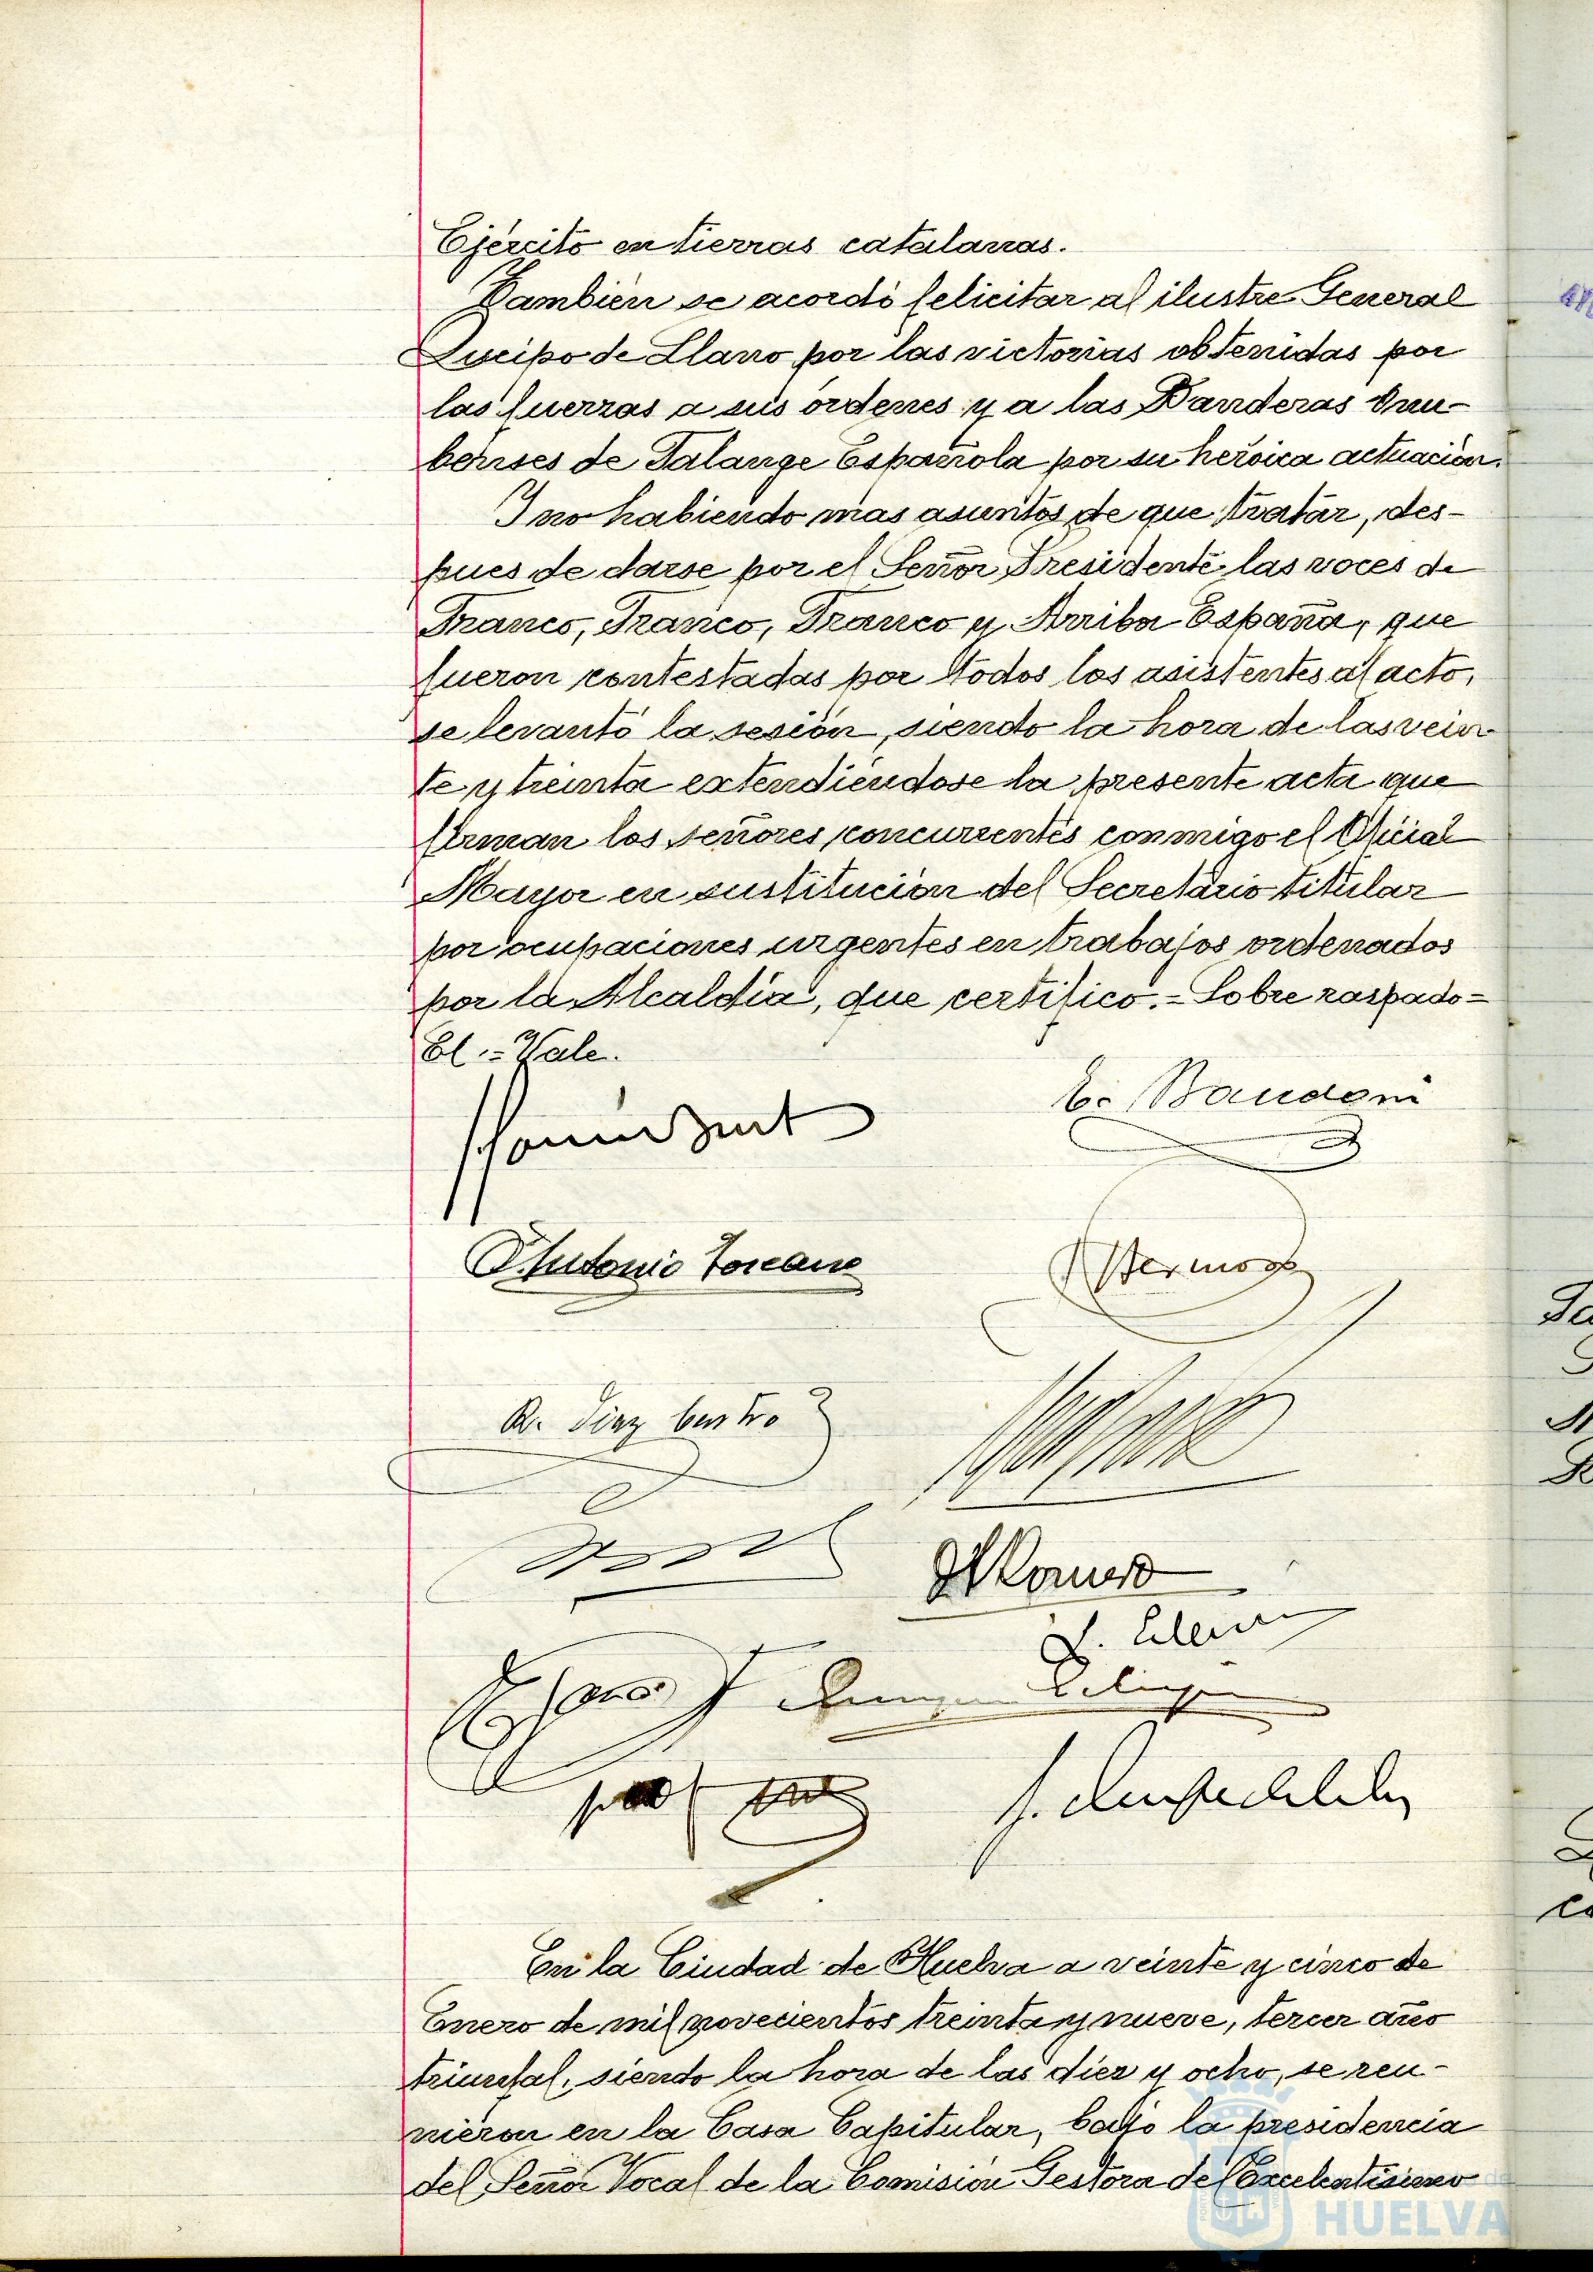 Ejército en tierras catalanas.
También se acordó felicitar al ilustre General
Queipo de Llano por las victorias obtenidas por
las fuerzas a sus órdenes y a las Banderas Onu-
benses de Falange Española por su heróica actuación.
Y no habiendo mas asuntos de que tratar, des-
pues de darse por el Señor Presidente las voces de
Franco, Franco, Franco y Arriba España, que
fueron contestadas por todos los asistentes al acto,
se levantó la sesión, siendo la hora de las vein-
te y treinta extendiéndose la presente acta que
firman los señores concurrentes conmigo el Oficial
Mayor en sustitución del Secretario titular
por ocupaciones urgentes en trabajos ordenados
por la Alcaldía, que certifico.= Sobre raspado=
El.=Vale.
Antonio Toscano
R. Diaz
Romero
En la Ciudad de Huelva a veinte y cinco de
Enero de mil novecientos treinta y nueve, tercer año
triunfal, siendo la hora de las diez y ocho, se reu-
nieron en la Casa Capitular, bajo la presidencia
del Señor Vocal de la Comisión Gestora del Excelentísimo
HUELVA